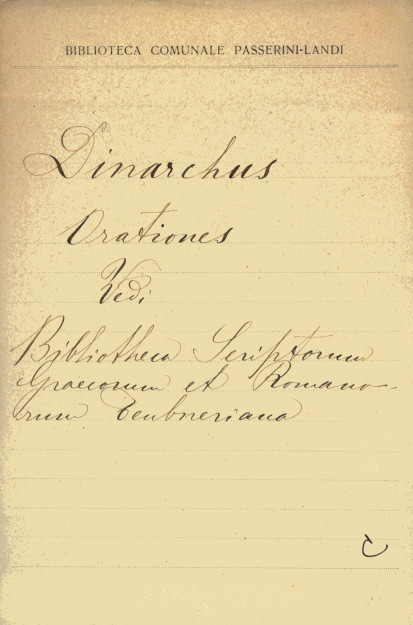 BIBLIOTECA COMUNALE PASSERINI-LANDI
Dinarchus
Orationes
Vedi
Bibliotheca Scriptorum
Graecorum et Romano-
rum Teubneriana